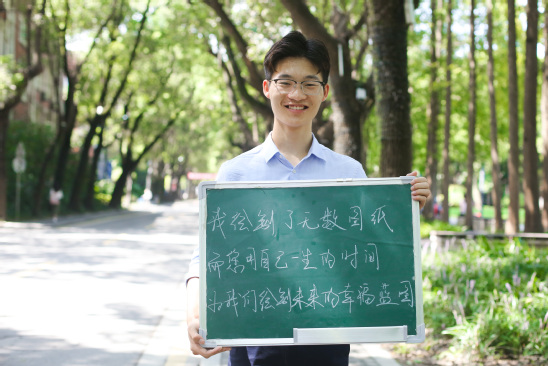 我绘制了无数图纸
而您用自己一生的时间
为我们绘制未来的幸福蓝图